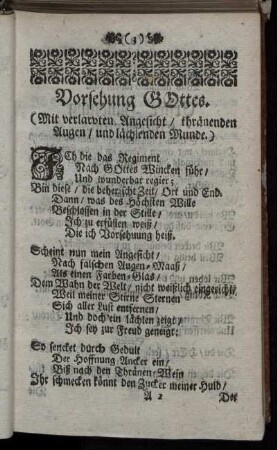 (3)
Vorsehung GOttes.
(Mit verlarvten Angesicht / thränenden
Augen / und lächlenden Munde.)
ICh die das Regiment
Nach GOttes Wincken führ/
Und wunderbar regier;
Bin diese / die beherrscht Zeit / Ort und End.
Dann / was des Höchsten Wille
Beschlossen in der Stille /
Ich zu erfüllen weiß /
Die ich Vorsehung heiß.
Scheint nun mein Angesicht /
Nach falschen Augen-Maaß /
Als einen Farben-Glas /
Dem Wahn der Welt / nicht weißlich eingericht /
Weil meiner Stirne Sternen
Sich aller Lust entfernen /
Und doch ein lächlen zeigt /
Ich sey zur Freud geneigt:
So sencket durch Gedult
Der Hoffnung Ancker ein /
Biß nach den Thränen-Wein
Ihr schmecken könnt den Zucker meiner Huld /
A 2 Der